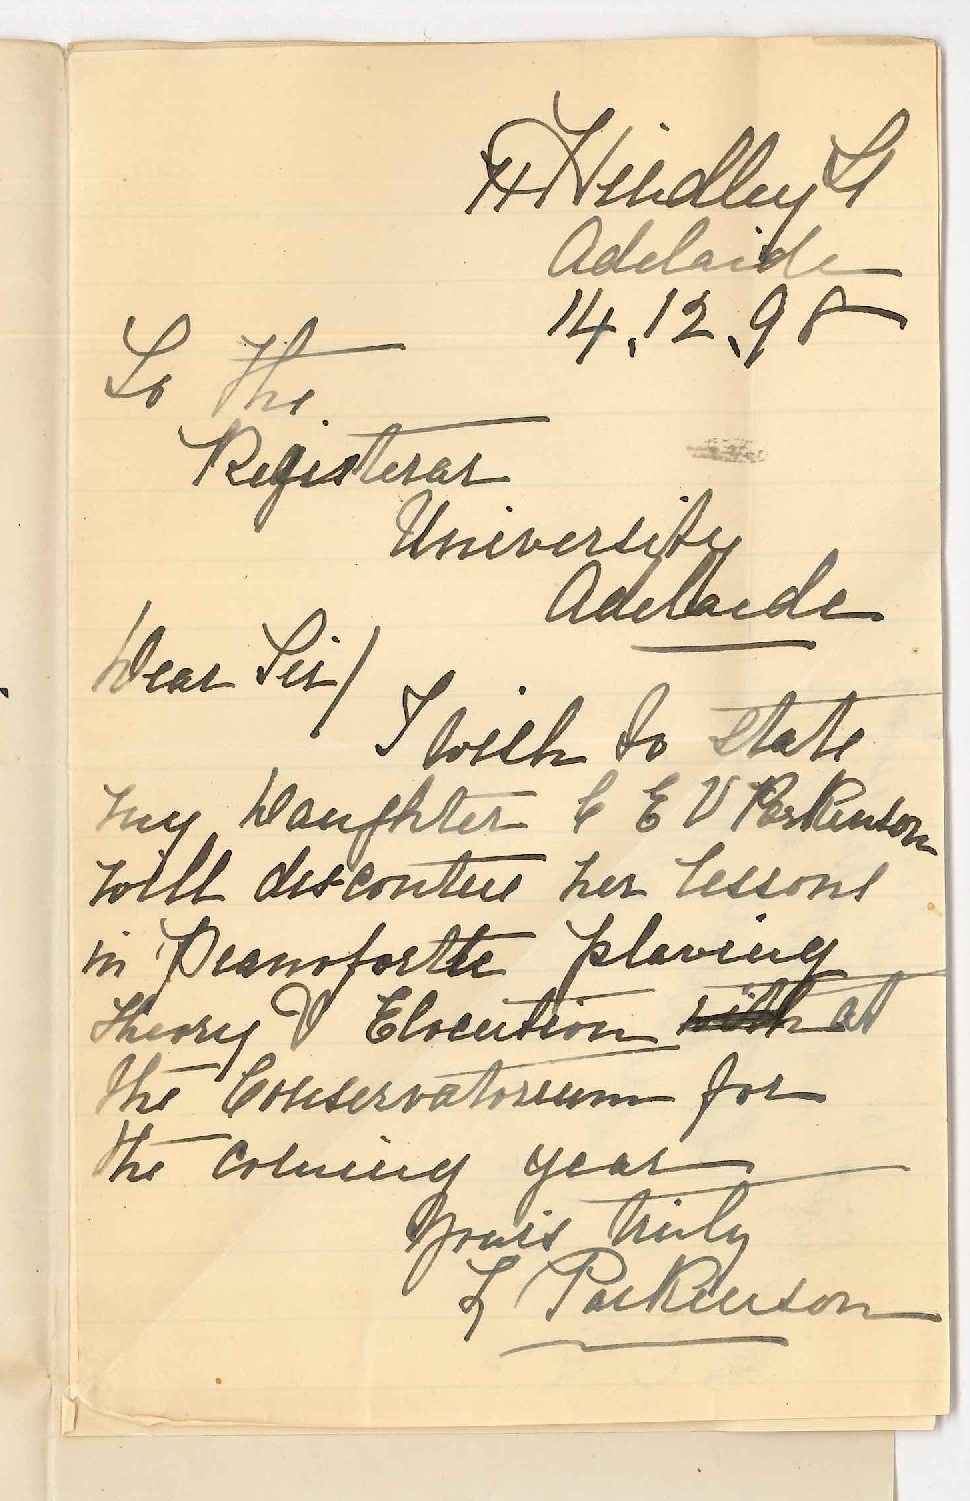 Hindley St
Adelaide
14.12.98
To The
Registerar
University
Adelaide
Dear Sir/
I wish to state
my Daughter C E V Parkinson
will discontue her lessons
in Pianofortte playing
Theory & Elocution with at
the Conservatorium for
the coming year
Yours truly
L Parkinson